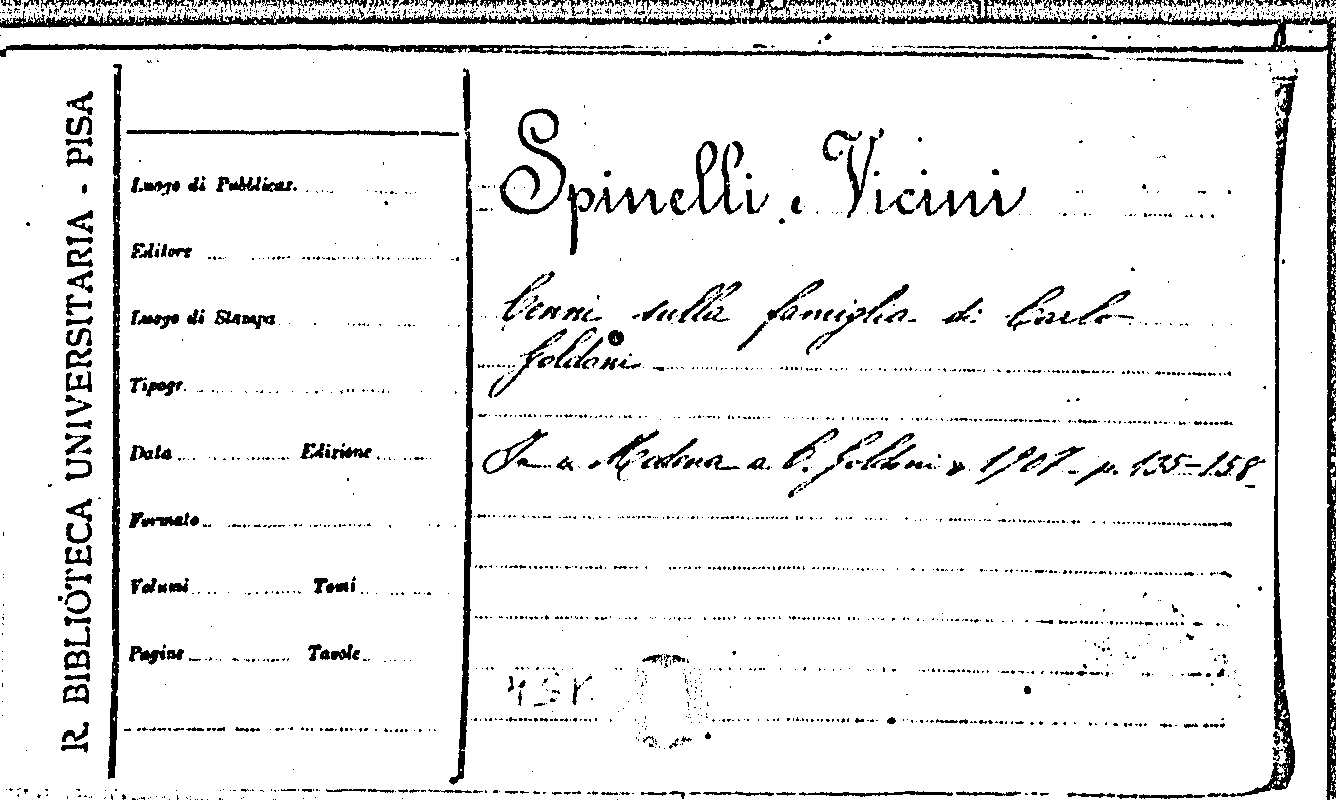 R. BIBLIOTECA UNIVERSITARIA - PISA
Luogo di Pubblicaz.
Editore
Luogo di Stampa
Tipogr.
Data Edizione
Formato
Volumi Tomi
Pagine Tavole
Spinelli e Vicini
Cenni sulla famiglia di Carlo
Goldoni
In « Modena a C. Goldoni » 1907 - p. 135-158